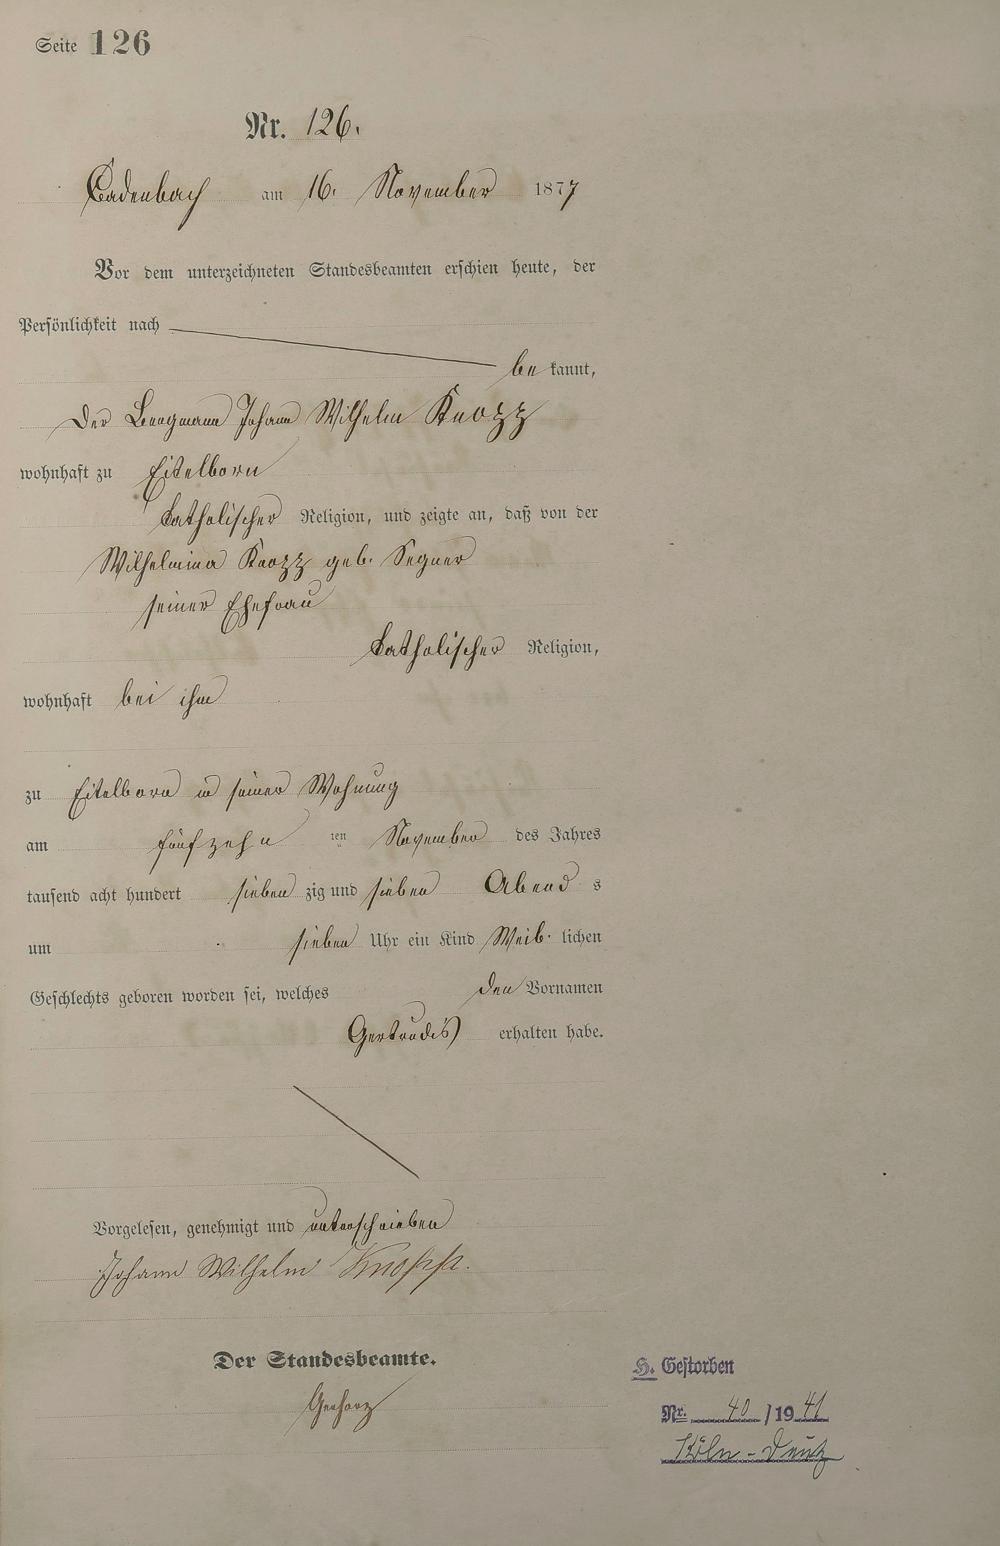 Seite 126
Nr. 126.
Cadenbach am 16. November 1877
Vor dem unterzeichneten Standesbeamten erschien heute, der
Persönlichkeit nach
bekannt,
Der Bergmann Johann Wilhelm Knopp
wohnhaft zu Eitelborn
katholischer Religion, und zeigte an, daß von der
Wilhelmina Knopp geb. Segner
seiner Ehefrau
katholischer Religion,
wohnhaft bei ihm
zu Eitelborn in seiner Wohnung
am fünfzehn ten November des Jahres
tausend acht hundert siebenzig und sieben Abends
um sieben Uhr ein Kind Weib. lichen
Geschlechts geboren worden sei, welches den Vornamen
Gertrudis erhalten habe.
Vorgelesen, genehmigt und unterschrieben
Johann Wilhelm Knopp.
Der Standesbeamte.
Gerharz
H. Gestorben
Nr. 40/1941
Köln-Deutz